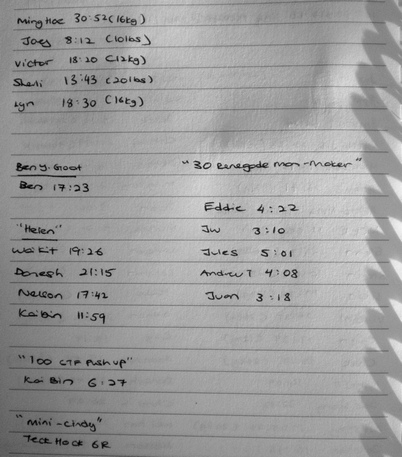 Ming Hoe 30:52 (16kg)
Joey 8:12 (10lbs)
Victor 18:20 (12kg)
Sheli 13:43 (20lbs)
Lyn 18:30 (16kg)
Ben y. Goat
Ben 17:23
"Helen"
Wai Kit 19:26
Danesh 21:15
Nelson 17:42
Kai Bin 11:59
"100 CTF Push up"
Kai Bin 6:27
"mini-cindy"
Teck Hock 6R
"30 Renegade man-maker"
Eddie 4:22
JW 3:10
Jules 5:01
Andrew T 4:08
Juan 3:18